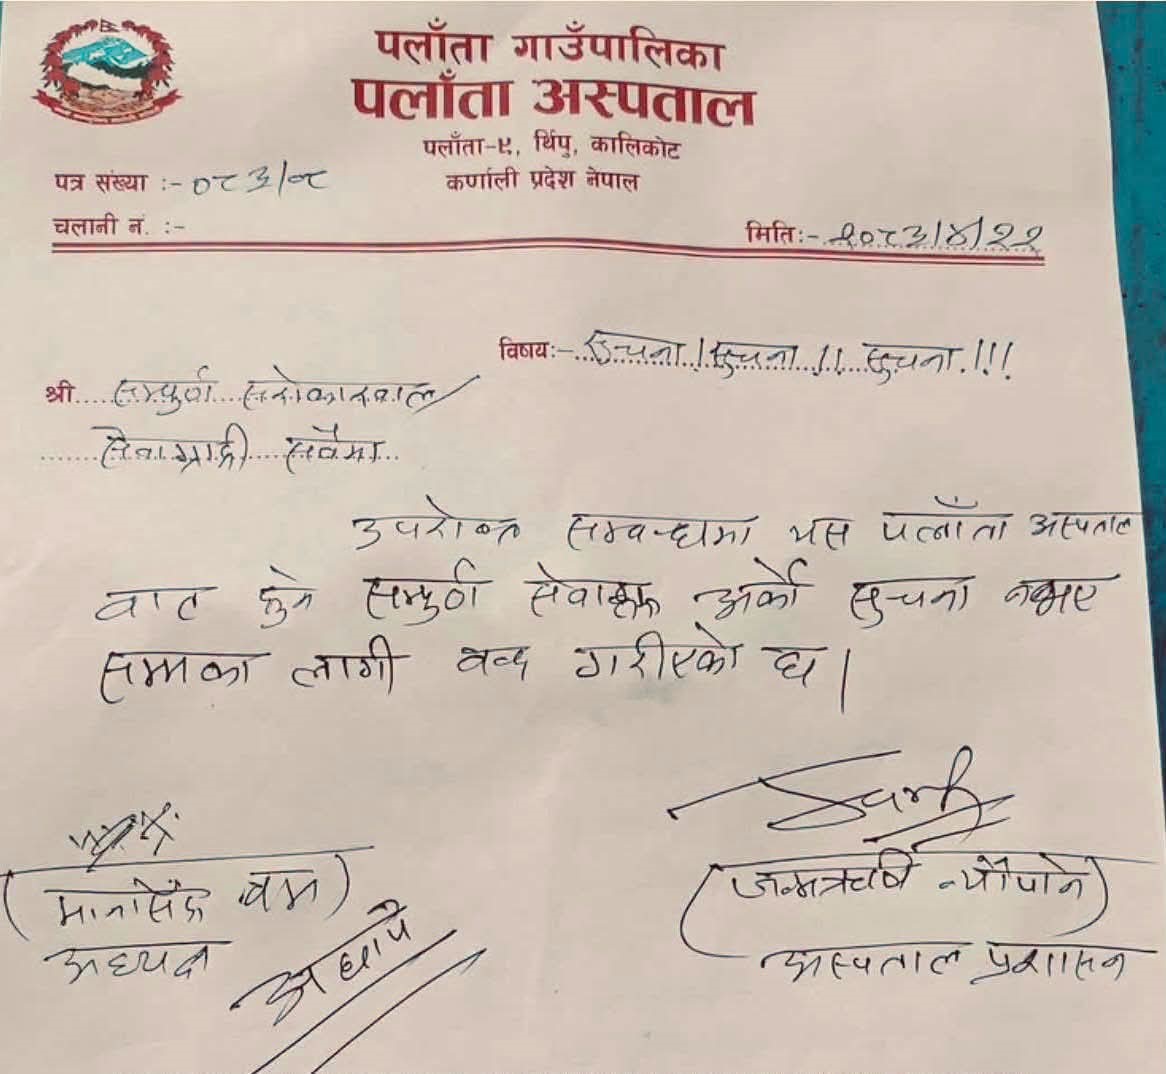 पलाँता गाउँपालिका
पलाँता अस्पताल
पलाँता-९, थिंपु, कालिकोट
कर्णाली प्रदेश नेपाल
पत्र संख्या :- ०८३/०८
चलानी नं. :-
मिति:- २०८३/४/२२
विषय:- सुचना ! सुचना !! सुचना !!!
श्री सम्पुर्ण सरोकारवाला/
सेवाग्राही सवैमा
उपरोक्त सम्वन्धमा यस पलाँता अस्पताल
वाट हुने सम्पुर्ण सेवाहरू अर्को सुचना नभए
सम्मका लागी वन्द गरीएको छ।
(जन्मऋषि न्यौपाने)
अस्पताल प्रशासन
(मानसिंह बम)
अध्यक्ष